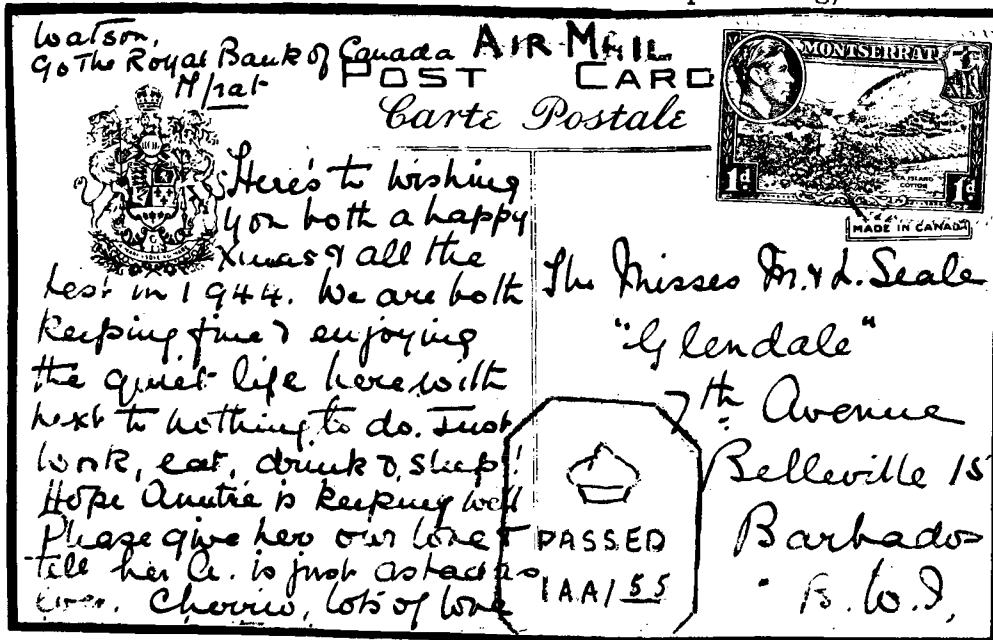 Watson,
c/o The Royal Bank of Canada
M/rat
AIR MAIL
POST CARD
Carte Postale
MONTSERRAT
SEA ISLAND
COTTON
1d 1d
MADE IN CANADA
Here's to wishing
you both a happy
Xmas & all the
best in 1944. We are both
keeping fine & enjoying
the quiet life here with
next to nothing to do. Just
work, eat, drink & sleep!
Hope Auntie is keeping well
Please give her our love &
tell her A. is just as bad as
ever. Cheerio, lots of love
The Misses M. & L. Seale
"Glendale"
7th Avenue
Belleville 15
Barbados
B.W.I.
PASSED
IAA/55